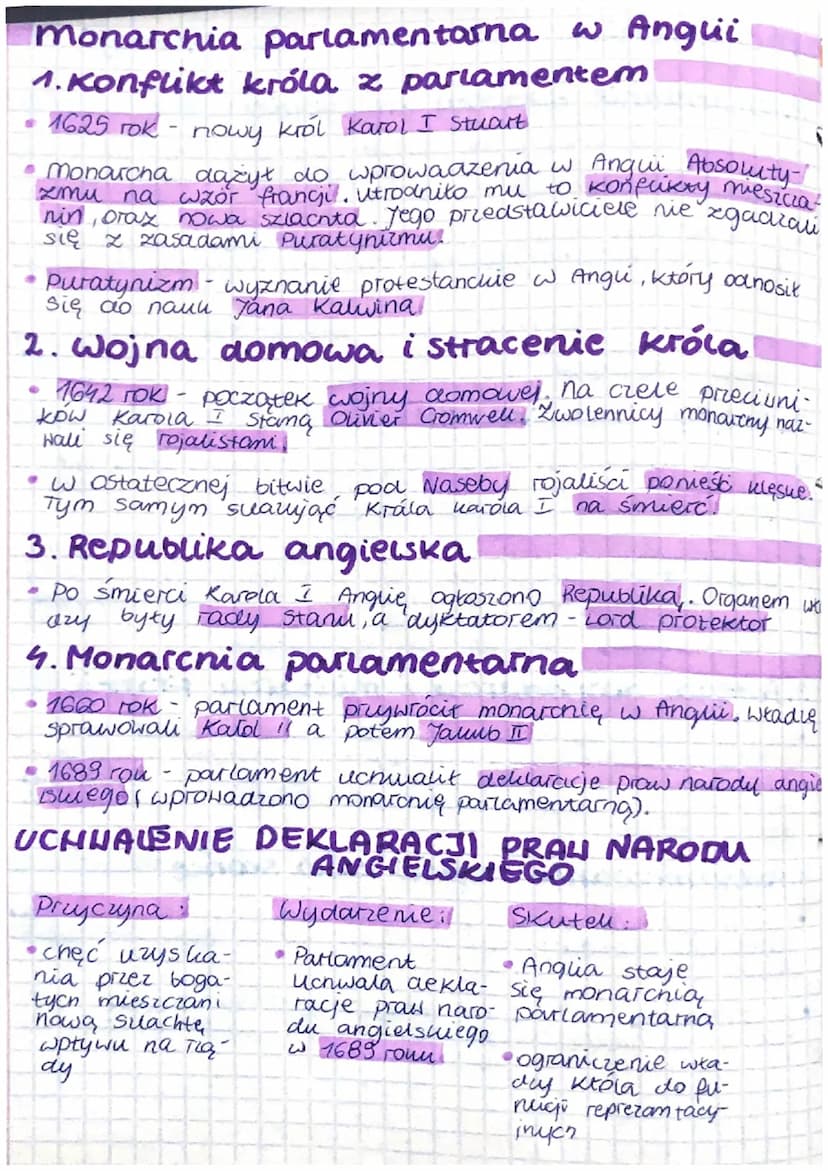 Monarchia parlamentarna w Anglii
1. Konflikt króla z parlamentem
• 1625 rok - nowy król Karol I Stuart
• Monarcha dążył do wprowadzenia w Anglii Absoluty-
zmu na wzór francji. Utrodniło mu to konflikty mieszcza-
nin, oraz nowa szlachta. Jego przedstawiciele nie zgadzali
się z zasadami Puratynizmu.
• Puratynizm - wyznanie protestanckie w Angli, który odnosił
się do nauk Jana Kalwina
2. Wojna domowa i stracenie króla
• 1642 rok - początek wojny domowej. Na czele przeciwni-
ków Karola I Staną Olivier Cromwell. Zwolennicy monarchy naz-
wali się rojalistami.
• W ostatecznej bitwie pod Naseby rojaliści ponieśś klęskę.
Tym samym skazująć Króla Karola I na śmierć.
3. Republika angielska
• Po śmierci Karola I Anglię ogłoszono Republiką. Organem wła
dzy były rady Stanu, a dyktatorem - Lord protektor
4. Monarchia parlamentarna
• 1660 rok - parlament przywrócił monarchię w Anglii. Władzę
sprawowali Karol II a potem Jakub II
• 1689 rok - parlament uchwalił deklaracje praw narody angie
lskiego (wprowadzono monarchię parlamentarną).
UCHWALENIE DEKLARACJI PRAW NARODU
ANGIELSKIEGO
Przyczyna:
• chęć uzyska-
nia przez boga-
tych mieszczan i
nową szlachtę
wpływu na rzą-
dy
Wydarzenie:
• Parlament
uchwala dekla-
racje praw naro-
du angielskiego
w 1689 roku
Skutek:
• Anglia staje
się monarchią
parlamentarną
• ograniczenie wła-
dzy króla do fu-
nkcji reprezantacy-
jnych